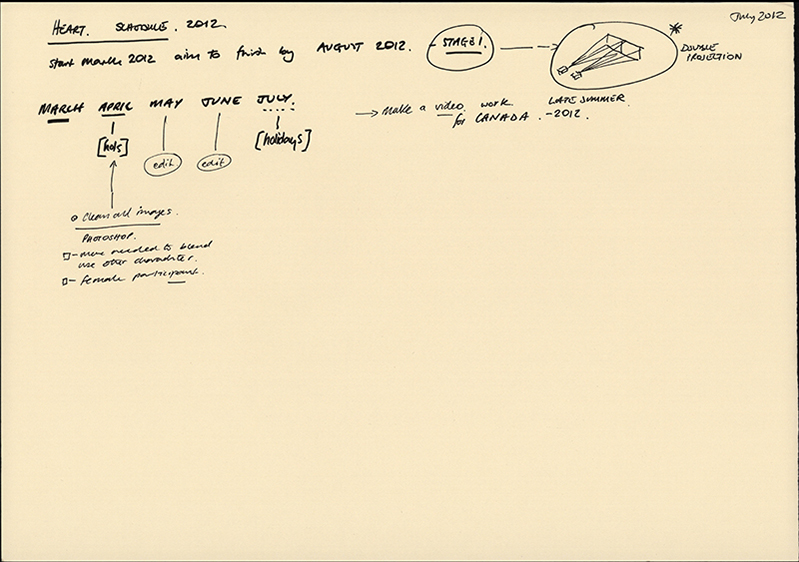 July 2012
HEART. SCHEDULE. 2012.
start march 2012 aim to finish by AUGUST 2012. - STAGE 1.
DOUBLE PROJECTION
MARCH APRIL MAY JUNE JULY.
→ Make a video work for CANADA.
LATE SUMMER - 2012.
[hols] edit edit [holidays]
clean all images.
PHOTOSHOP.
- more needed to blend
use other character.
- female participant.